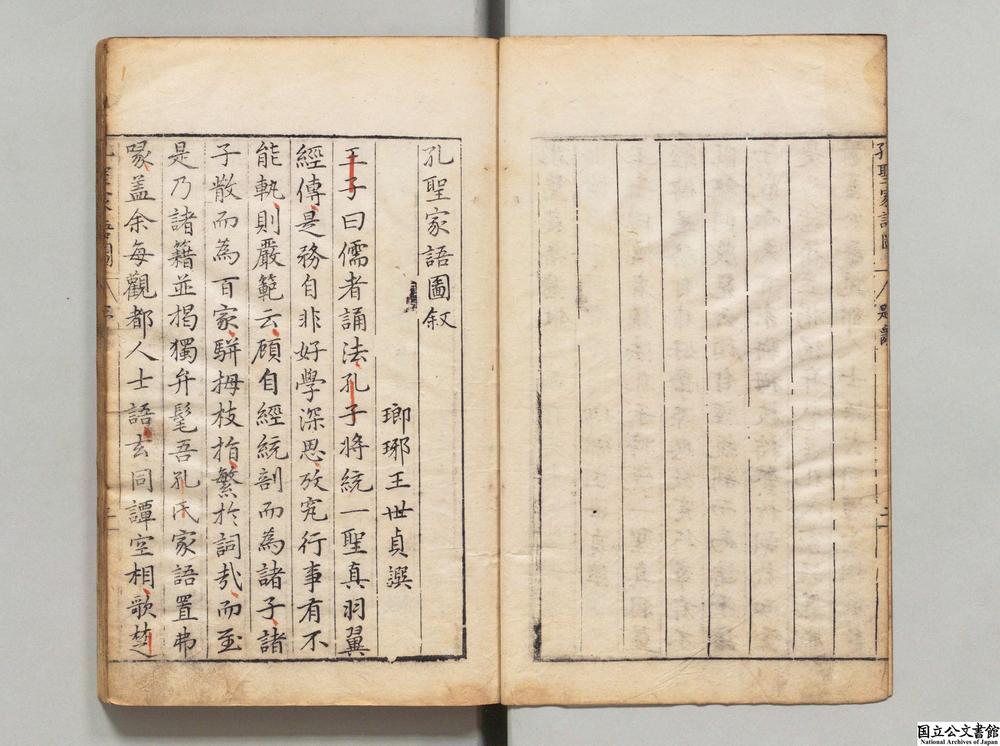 孔聖家語圖
孔聖家語圖叙
瑯琊王世貞譔
王子曰儒者誦法孔子將統一聖真羽翼
經傳是務自非好學深思攷究行事有不
能執則嚴範云顧自經統剖而為諸子諸
子散而為百家駢拇枝指繁於詞哉而至
是乃諸籍並揭獨弁髦吾孔氏家語置弗
喙盖余每觀都人士語玄同譚空相歌楚
孔聖家語圖
国立公文書館
National Archives of Japan